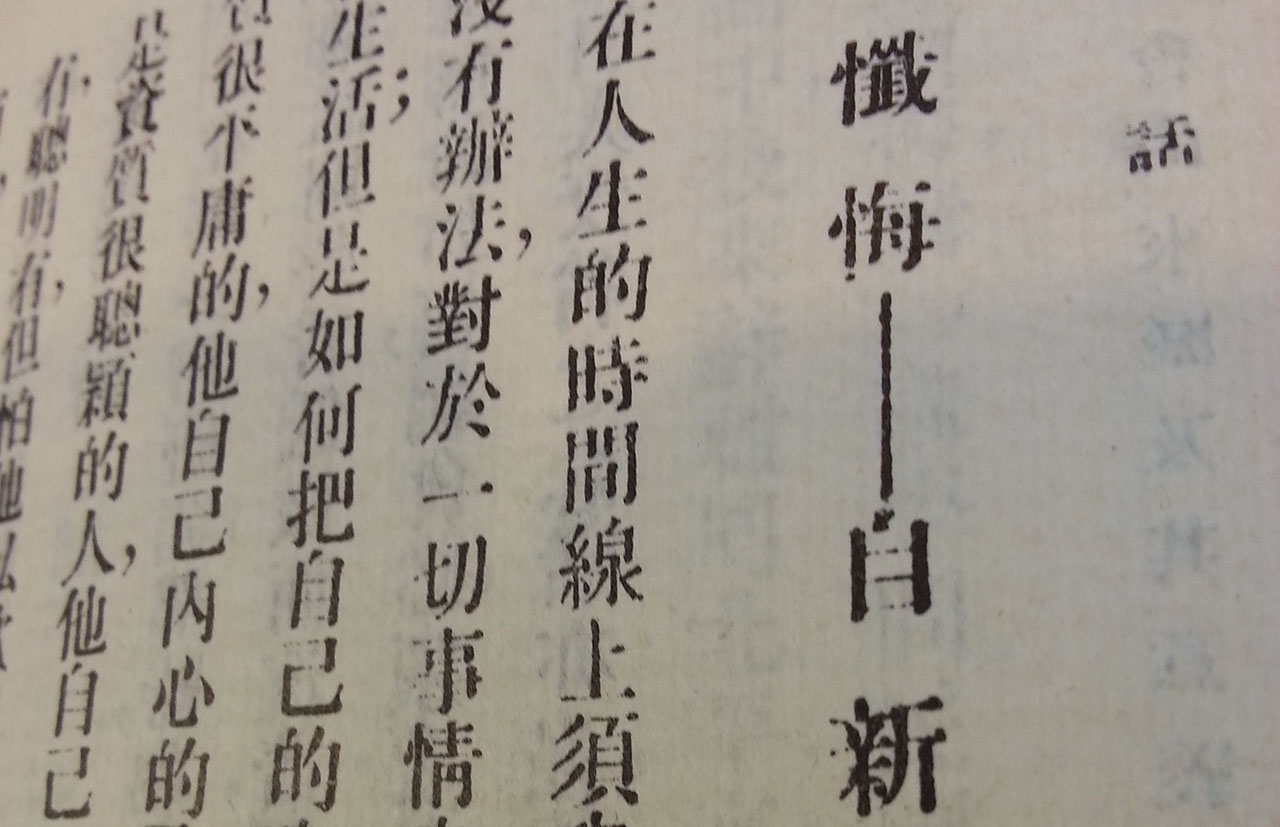 話
懺悔—自新
在人生的時間線上須
沒有辦法，對於一切事情
生活；但是如何把自己的
很不庸的，他自己內心的
是資質很聰穎的人，他自己
有聰明有，但怕他